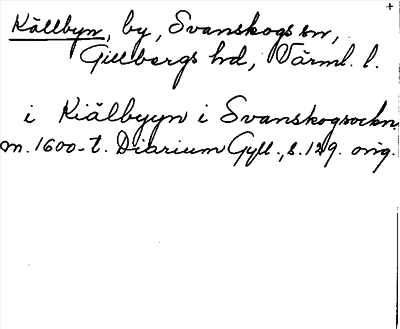 Källbyn, by, Svanskogs sn,
Gillbergs hd, Värml. l.
i Kiälbyyn i Svanskogsockn
m. 1600-t. Diarium Gyll., s. 129. orig.